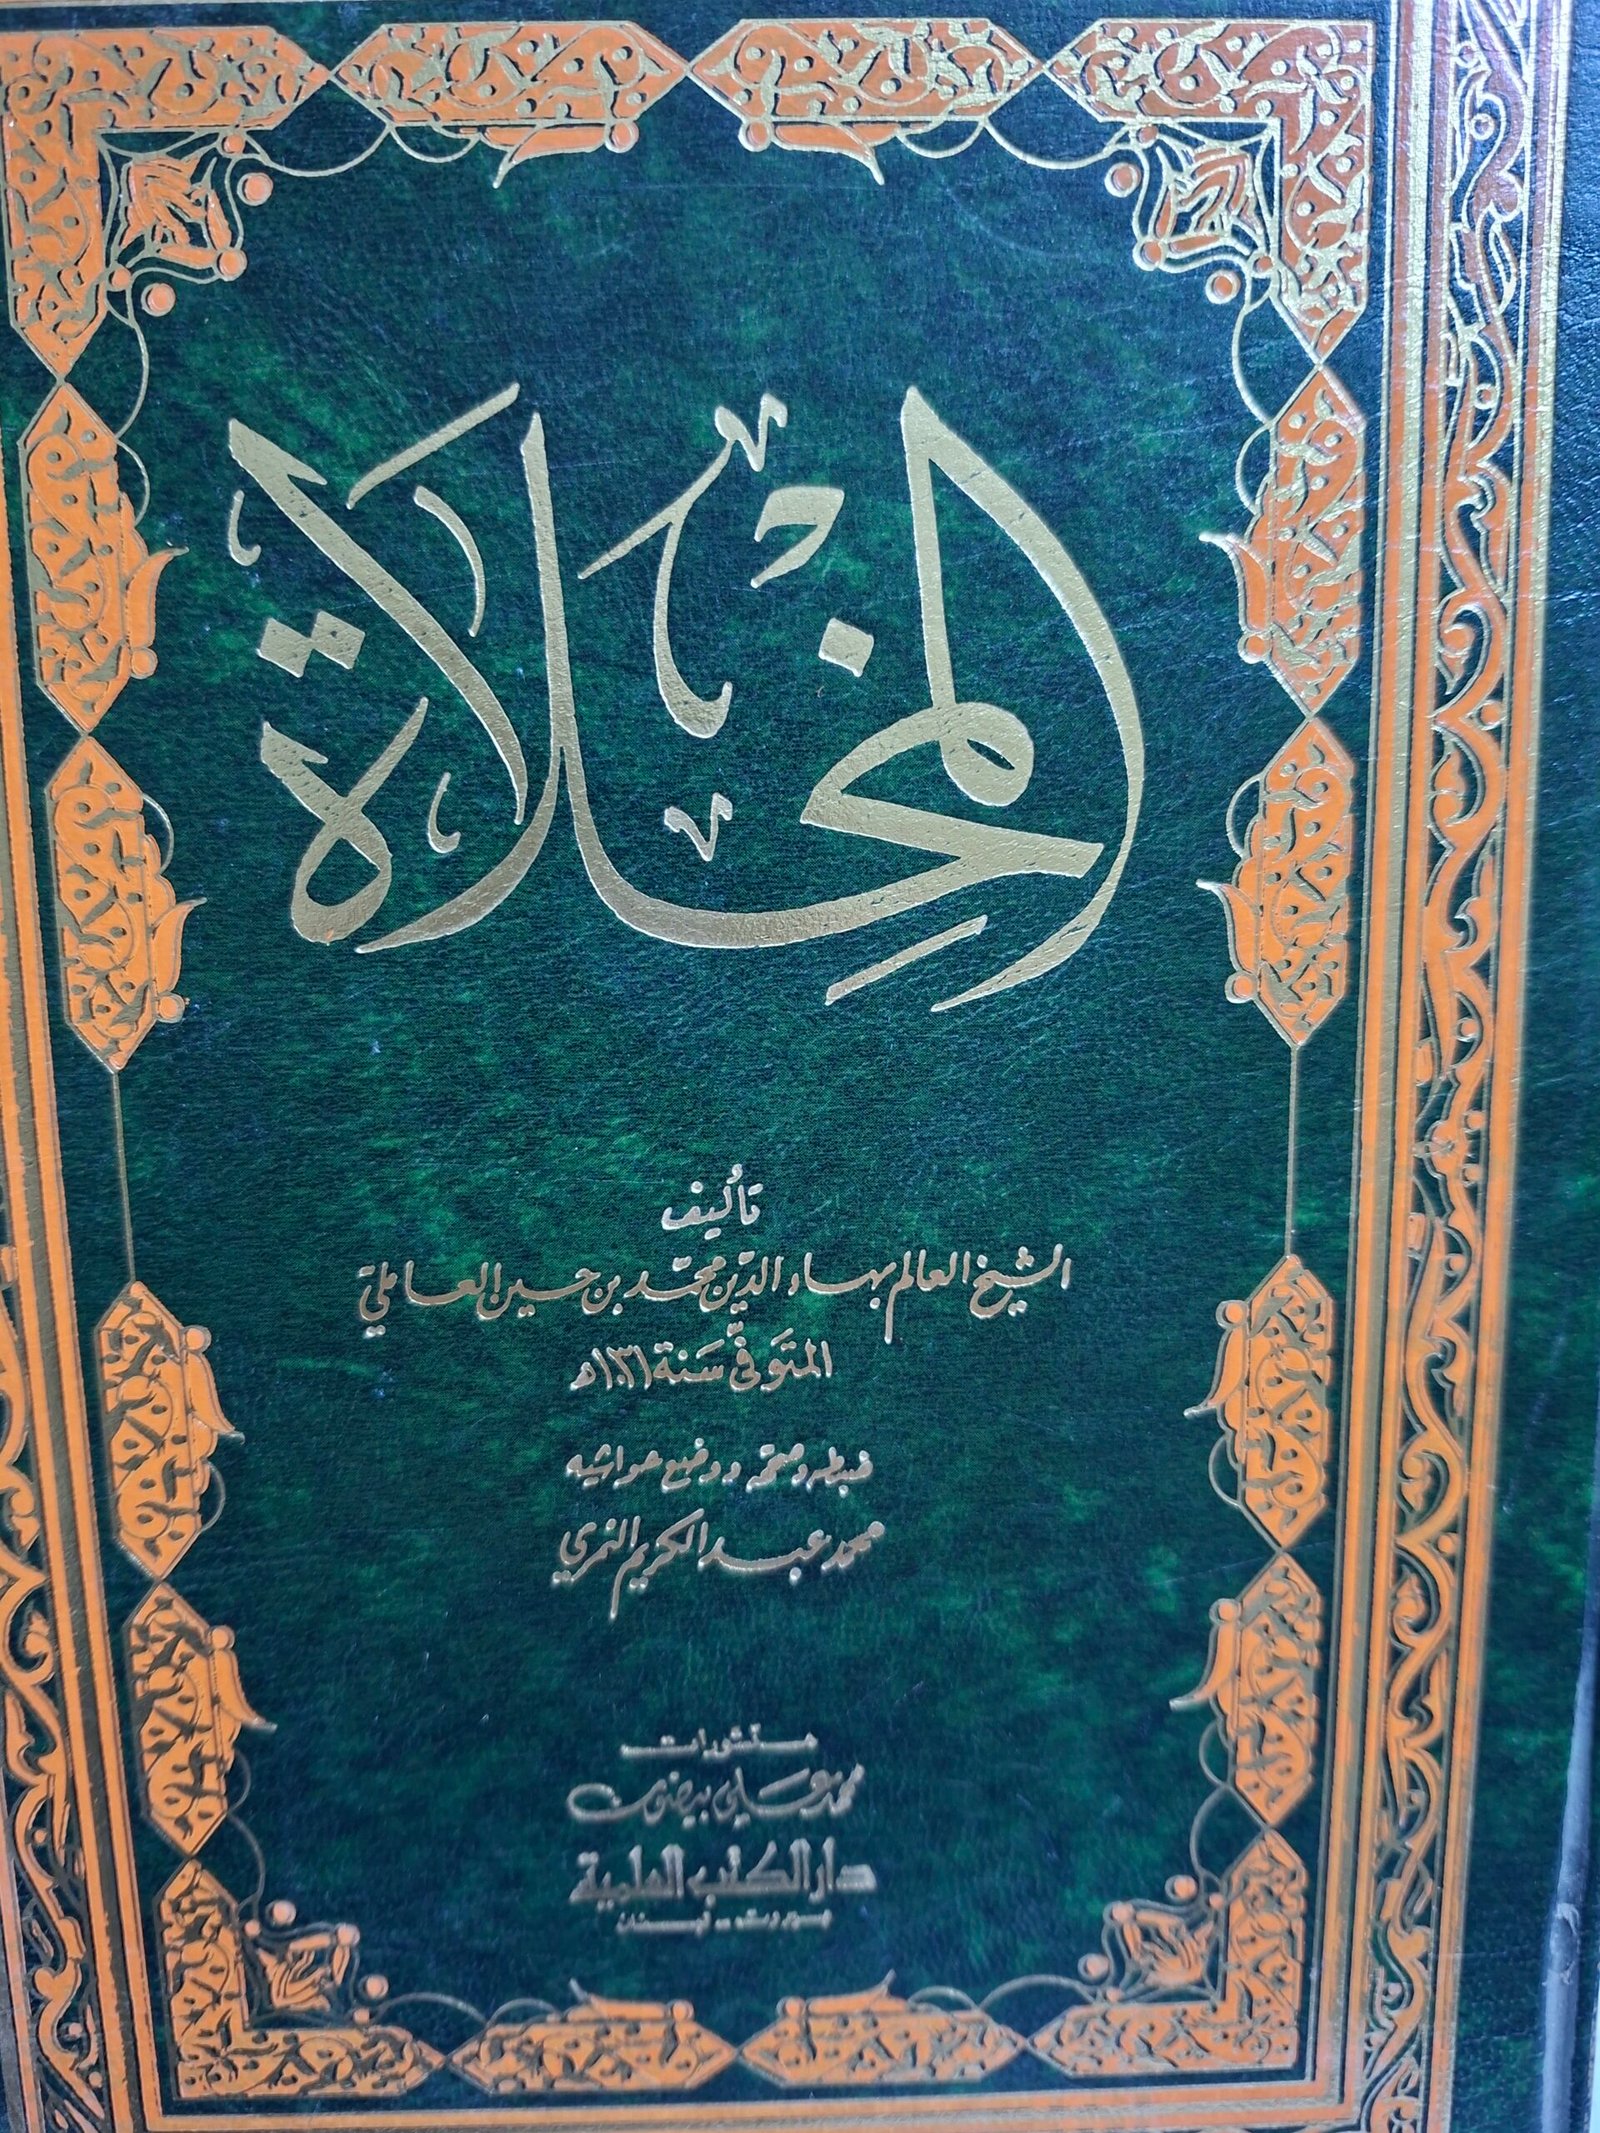 المِخلاة
تأليف
الشيخ العالم بهاء الدّين محمّد بن حسين العاملي
المتوَفّى سَنة ١٠٣١ه
ضبطه وصححه ووضع حواشيه
محمد عبد الكريم النمري
منشورات
محمد علي بيضون
دار الكتب العلمية
بيروت - لبنان